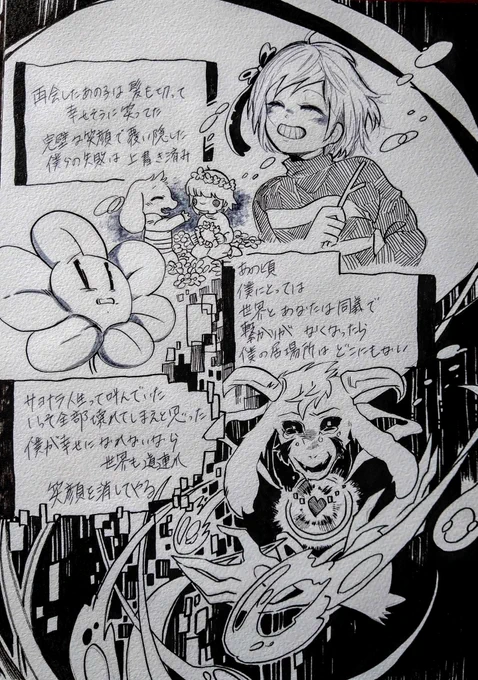 再会したあの子は 髪も切って
幸せそうに笑ってた
完璧な笑顔で覆い隠した
僕らの失敗は 上書き済み
あの頃
僕にとっては
世界とあなたは同義で
繋がりが なくなったら
僕の居場所は どこにもない
サヨナラ人生って叫んでいた
いっそ全部壊れてしまえと思った
僕が幸せになれないなら
世界も道連れ
笑顔を消してやる